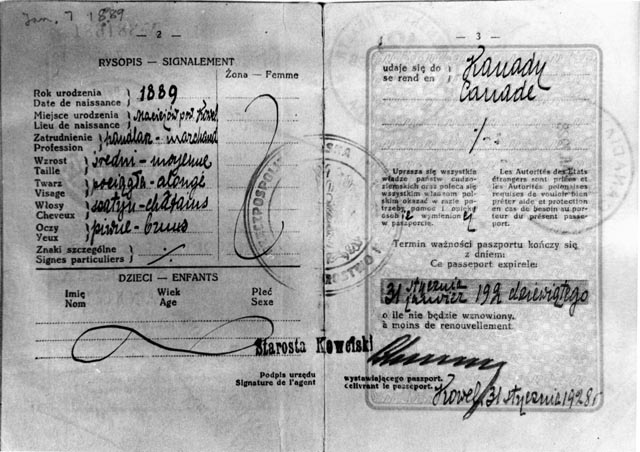 Jan. 7 1889
— 2 —
RYSOPIS — SIGNALEMENT
Żona — Femme
Rok urodzenia
Date de naissance
1889
Miejsce urodzenia
Lieu de naissance
Maciejów pow. Kowel
Zatrudnienie
Profession
handlarz - marchand
Wzrost
Taille
średni - moyenne
Twarz
Visage
pociągła - alongé
Włosy
Cheveux
szatyn - châtains
Oczy
Yeux
piwne - bruns
Znaki szczególne
Signes particuliers
DZIECI — ENFANTS
Imię
Nom
Wiek
Age
Płeć
Sexe
Starosta Kowelski
Podpis urzędu
Signature de l'agent
— 3 —
udaje się do
se rend en
Kanady
Canade
Uprasza się wszystkie
władze państw cudzo-
ziemskich oraz poleca się
wszystkim władzom pol-
skim okazać w razie po-
trzeby pomoc i opiekę
osobie wymienionej
w paszporcie.
Les Autorités des Etats
étrangers sont priées et
les Autorités polonaises
requises de vouloir bien
prêter aide et protection
en cas de besoin au por-
teur du présent passe-
port.
Termin ważności paszportu kończy się
z dniem:
Ce passeport expirele:
31 stycznia
janvier
192 dziewiątego
o ile nie będzie wznowiony.
à moins de renouvellement.
wystawiającego paszport.
délivrant le passeport.
Kowel, 31 stycznia 1928 r.